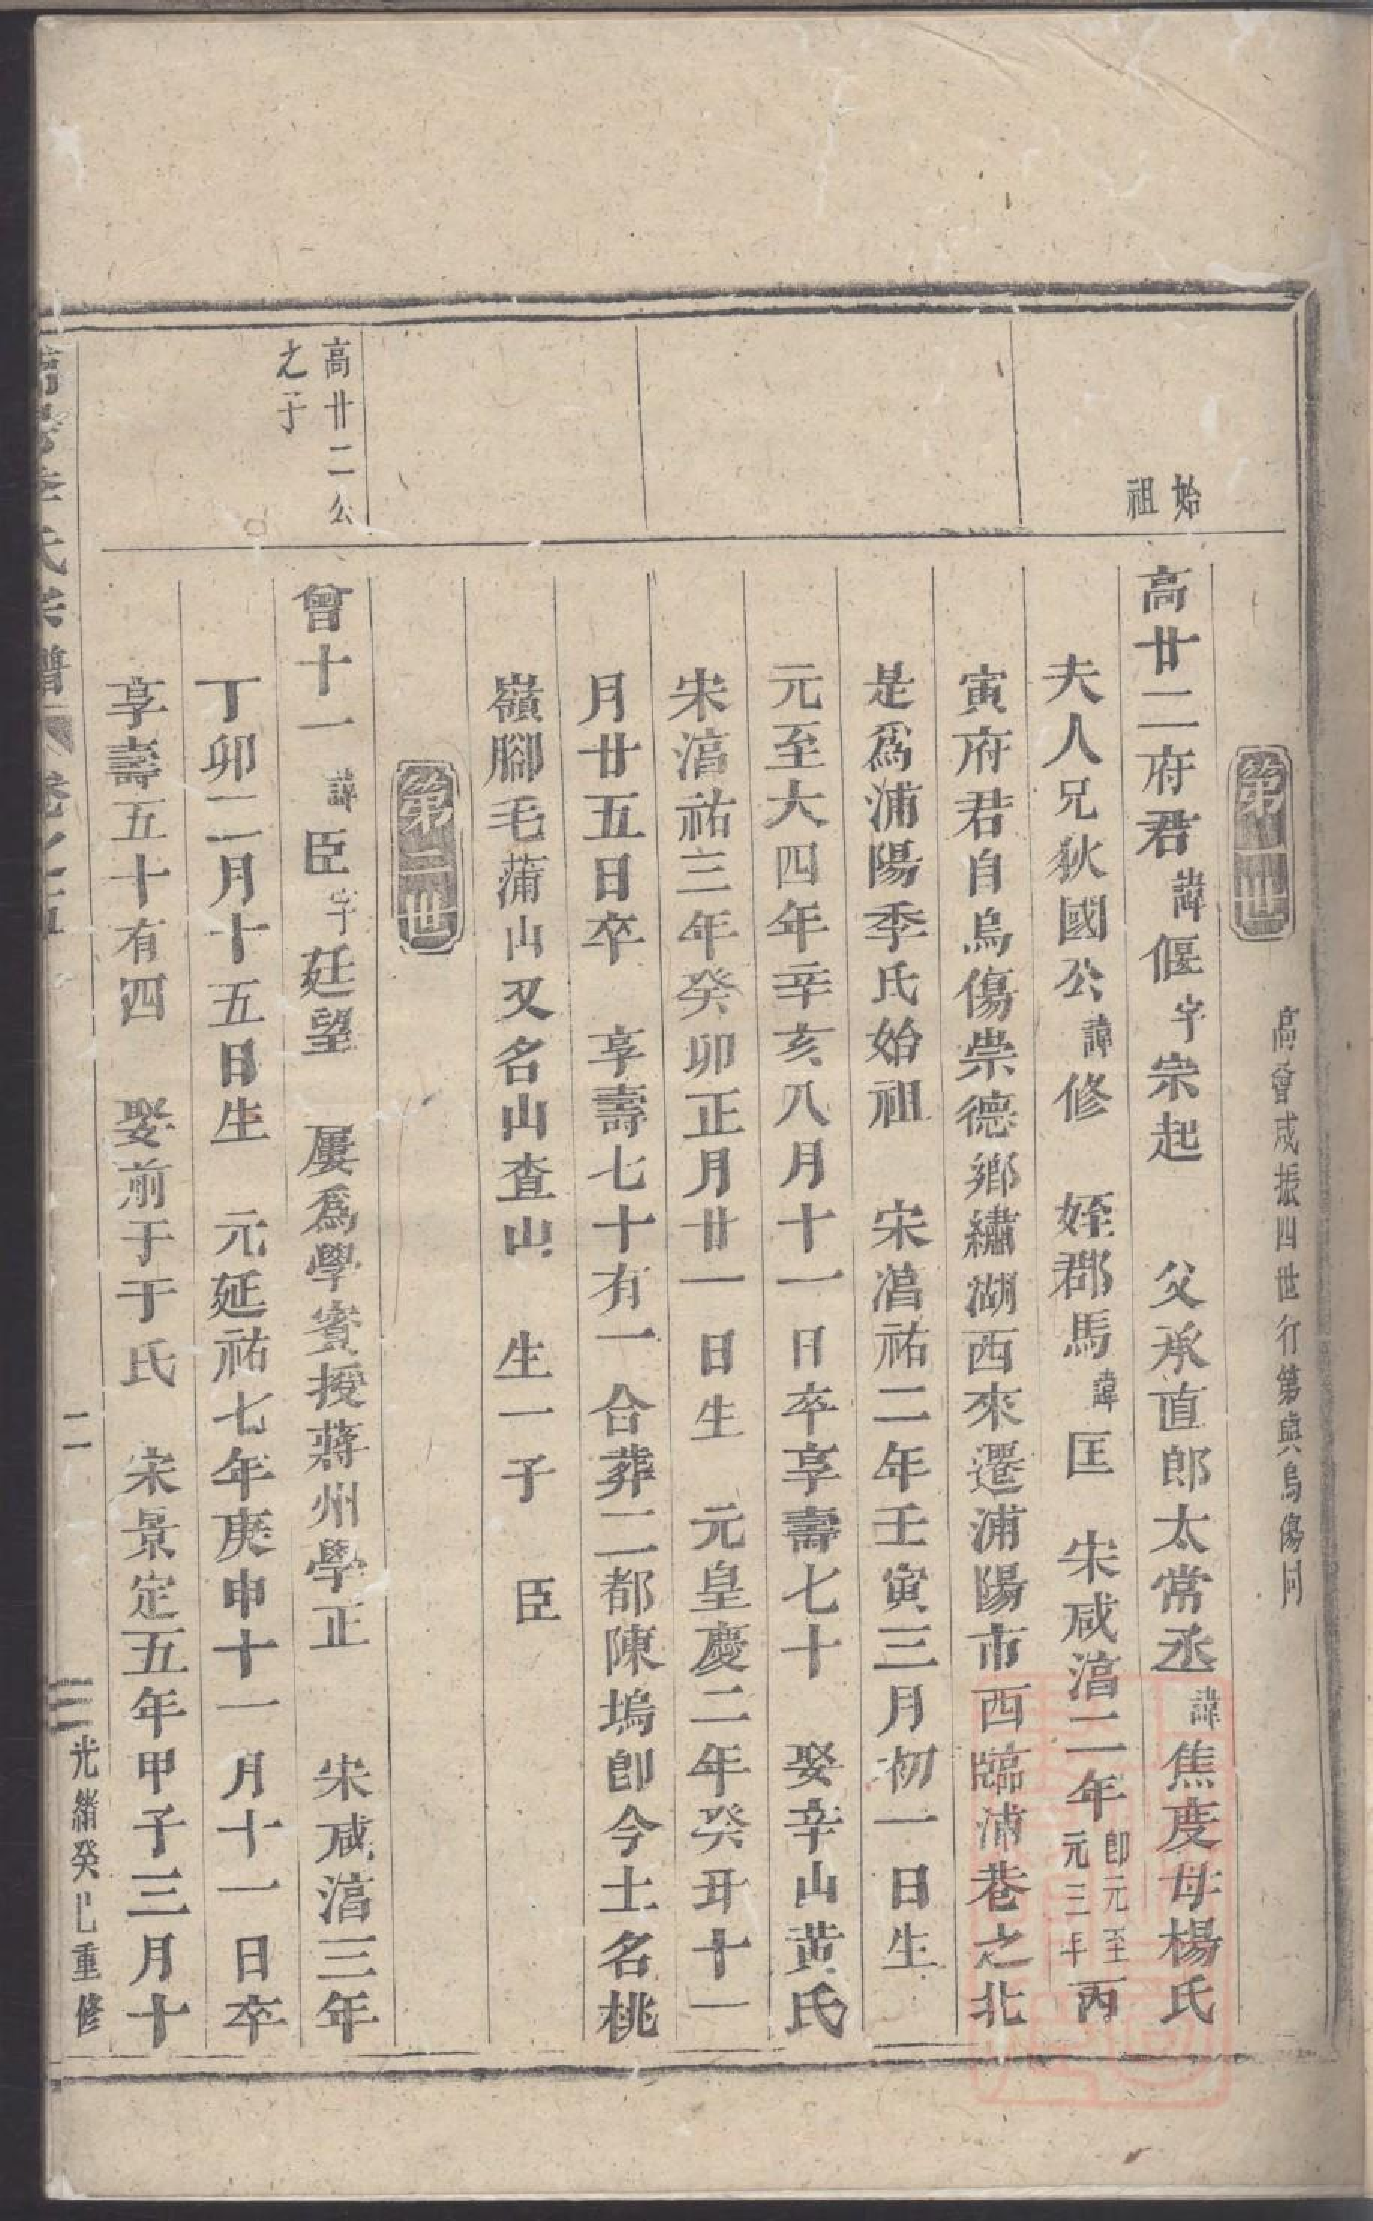 第一世
高曾咸振四世行第與烏傷同
始祖
高廿二府君諱偃字宗起　父承直郎太常丞諱焦度母楊氏
夫人兄狄國公諱修　姪郡馬諱匡　宋咸湻二年卽元至元三年丙
寅府君自烏傷崇德鄉繡湖西來遷浦陽市西臨浦巷之北
是爲浦陽季氏始祖　宋湻祐二年壬寅三月初一日生
元至大四年辛亥八月十一日卒享壽七十　娶辛山黃氏
宋湻祐三年癸卯正月廿一日生　元皇慶二年癸丑十一
月廿五日卒　享壽七十有一　合葬二都陳塢卽今土名桃
嶺腳毛蒲山又名山查山　生一子　臣
第二世
高廿二公
之子
曾十一諱臣字廷望　屢爲學賓授蔣州學正　宋咸湻三年
丁卯二月十五日生　元延祐七年庚申十一月十一日卒
享壽五十有四　娶前于于氏　宋景定五年甲子三月十
季氏宗譜　卷之五　二　光緒癸巳重修